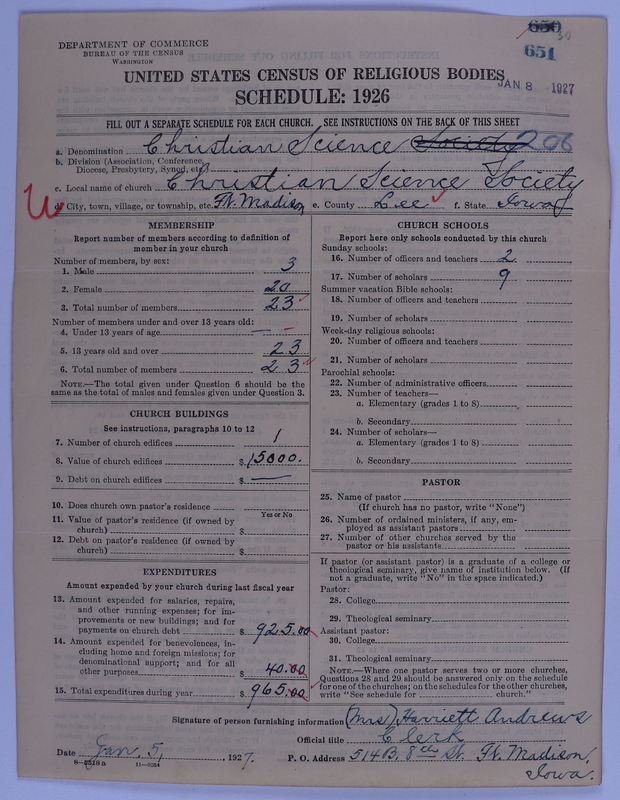 650
50
651
DEPARTMENT OF COMMERCE
BUREAU OF THE CENSUS
WASHINGTON
UNITED STATES CENSUS OF RELIGIOUS BODIES
JAN 8 1927
SCHEDULE: 1926
FILL OUT A SEPARATE SCHEDULE FOR EACH CHURCH. SEE INSTRUCTIONS ON THE BACK OF THIS SHEET
a. Denomination Christian Science Society 206
b. Division (Association, Conference, Diocese, Presbytery, Synod, etc.)
c. Local name of church Christian Science Society
d. City, town, village, or township, etc. Ft. Madison e. County Lee f. State Iowa
MEMBERSHIP
Report number of members according to definition of member in your church
Number of members, by sex:
1. Male 3
2. Female 20
3. Total number of members 23
Number of members under and over 13 years old:
4. Under 13 years of age —
5. 13 years old and over 23
6. Total number of members 23
NOTE.—The total given under Question 6 should be the same as the total of males and females given under Question 3.
CHURCH BUILDINGS
See instructions, paragraphs 10 to 12
7. Number of church edifices 1
8. Value of church edifices $ 15000.
9. Debt on church edifices $ —
10. Does church own pastor's residence
Yes or No
11. Value of pastor's residence (if owned by church) $
12. Debt on pastor's residence (if owned by church) $
EXPENDITURES
Amount expended by your church during last fiscal year
13. Amount expended for salaries, repairs, and other running expenses; for improvements or new buildings; and for payments on church debt $ 925.00
14. Amount expended for benevolences, including home and foreign missions; for denominational support; and for all other purposes $ 40.00
15. Total expenditures during year $ 965.00
CHURCH SCHOOLS
Report here only schools conducted by this church
Sunday schools:
16. Number of officers and teachers 2
17. Number of scholars 9
Summer vacation Bible schools:
18. Number of officers and teachers
19. Number of scholars
Week-day religious schools:
20. Number of officers and teachers
21. Number of scholars
Parochial schools:
22. Number of administrative officers
23. Number of teachers—
a. Elementary (grades 1 to 8)
b. Secondary
24. Number of scholars—
a. Elementary (grades 1 to 8)
b. Secondary
PASTOR
25. Name of pastor
(If church has no pastor, write "None")
26. Number of ordained ministers, if any, employed as assistant pastors
27. Number of other churches served by the pastor or his assistants
If pastor (or assistant pastor) is a graduate of a college or theological seminary, give name of institution below. (If not a graduate, write "No" in the space indicated.)
Pastor:
28. College
29. Theological seminary
Assistant pastor:
30. College
31. Theological seminary
NOTE.—Where one pastor serves two or more churches, Questions 28 and 29 should be answered only on the schedule for one of the churches; on the schedules for the other churches, write "See schedule for church."
Signature of person furnishing information (Mrs) Harriett Andrews
Official title Clerk
Date Jan. 5, 1927. P. O. Address 514 B. 8th St. Ft. Madison, Iowa.
8-5518a 11-9064